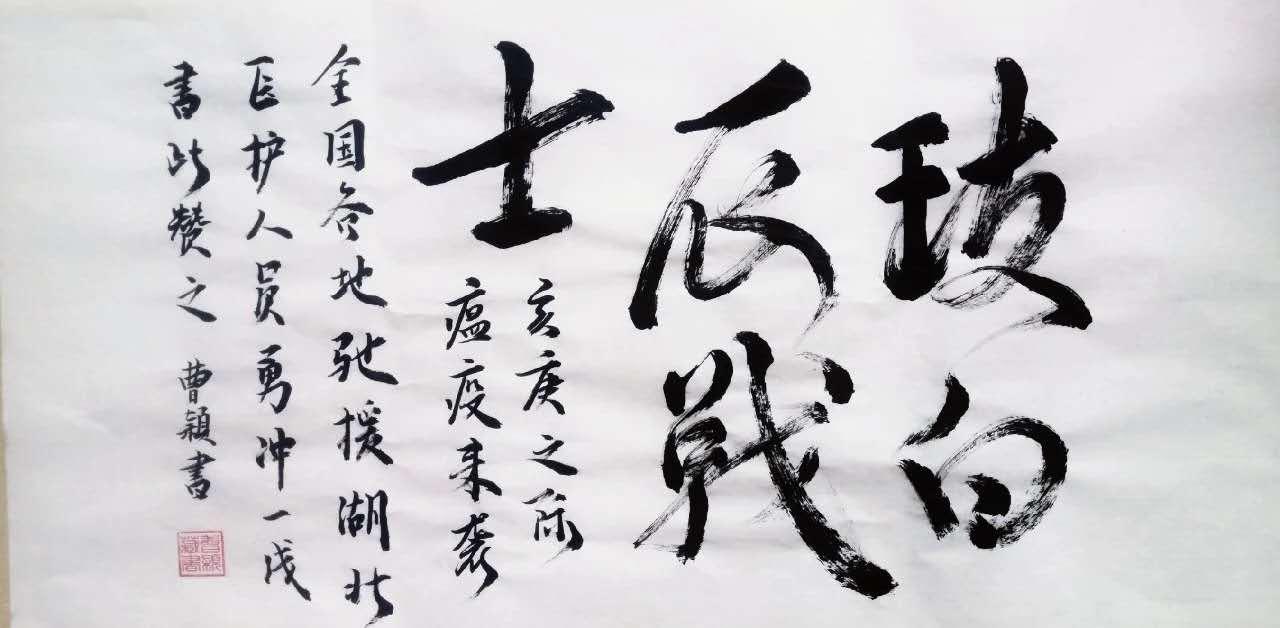 致白
衣戰
士
亥庚之际
瘟疫来袭
全国各地驰援湖北
医护人员勇冲一线
書此赞之 曹颖書